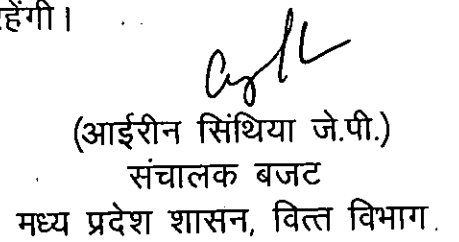 रहेंगी।
(आईरीन सिंथिया जे.पी.)
संचालक बजट
मध्य प्रदेश शासन, वित्त विभाग